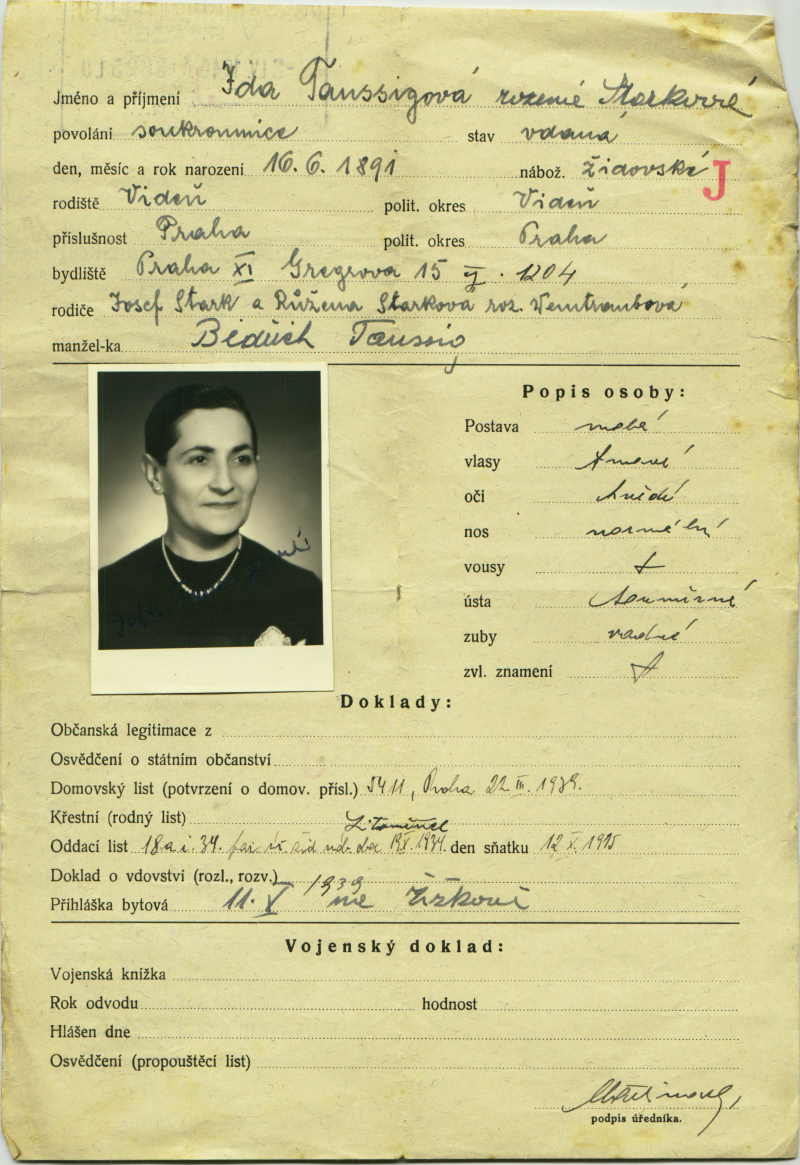 Jméno a příjmení Ida Taussigová rozená Starková
povolání soukromnice stav vdaná
den, měsíc a rok narození 16. 6. 1891 nábož. židovské J
rodiště Vídeň polit. okres Vídeň
příslušnost Praha polit. okres Praha
bydliště Praha XI Gregrova 15 1204
rodiče Josef Stark a Růžena Starková roz.
manžel-ka Bedřich Taussig
Popis osoby:
Postava malá
vlasy tmavé
oči hnědé
nos normální
vousy
ústa souměrné
zuby vadné
zvl. znamení
Doklady:
Občanská legitimace z
Osvědčení o státním občanství
Domovský list (potvrzení o domov. přísl.) 5411, Praha 22 III. 1939.
Křestní (rodný list)
Litoměřice
Oddací list 18 a i. 34. den sňatku 12 X. 1915
Doklad o vdovství (rozl., rozv.)
Přihláška bytová 11. V 1939 na Žižkově
Vojenský doklad:
Vojenská knížka
Rok odvodu hodnost
Hlášen dne
Osvědčení (propouštěcí list)
podpis úředníka.